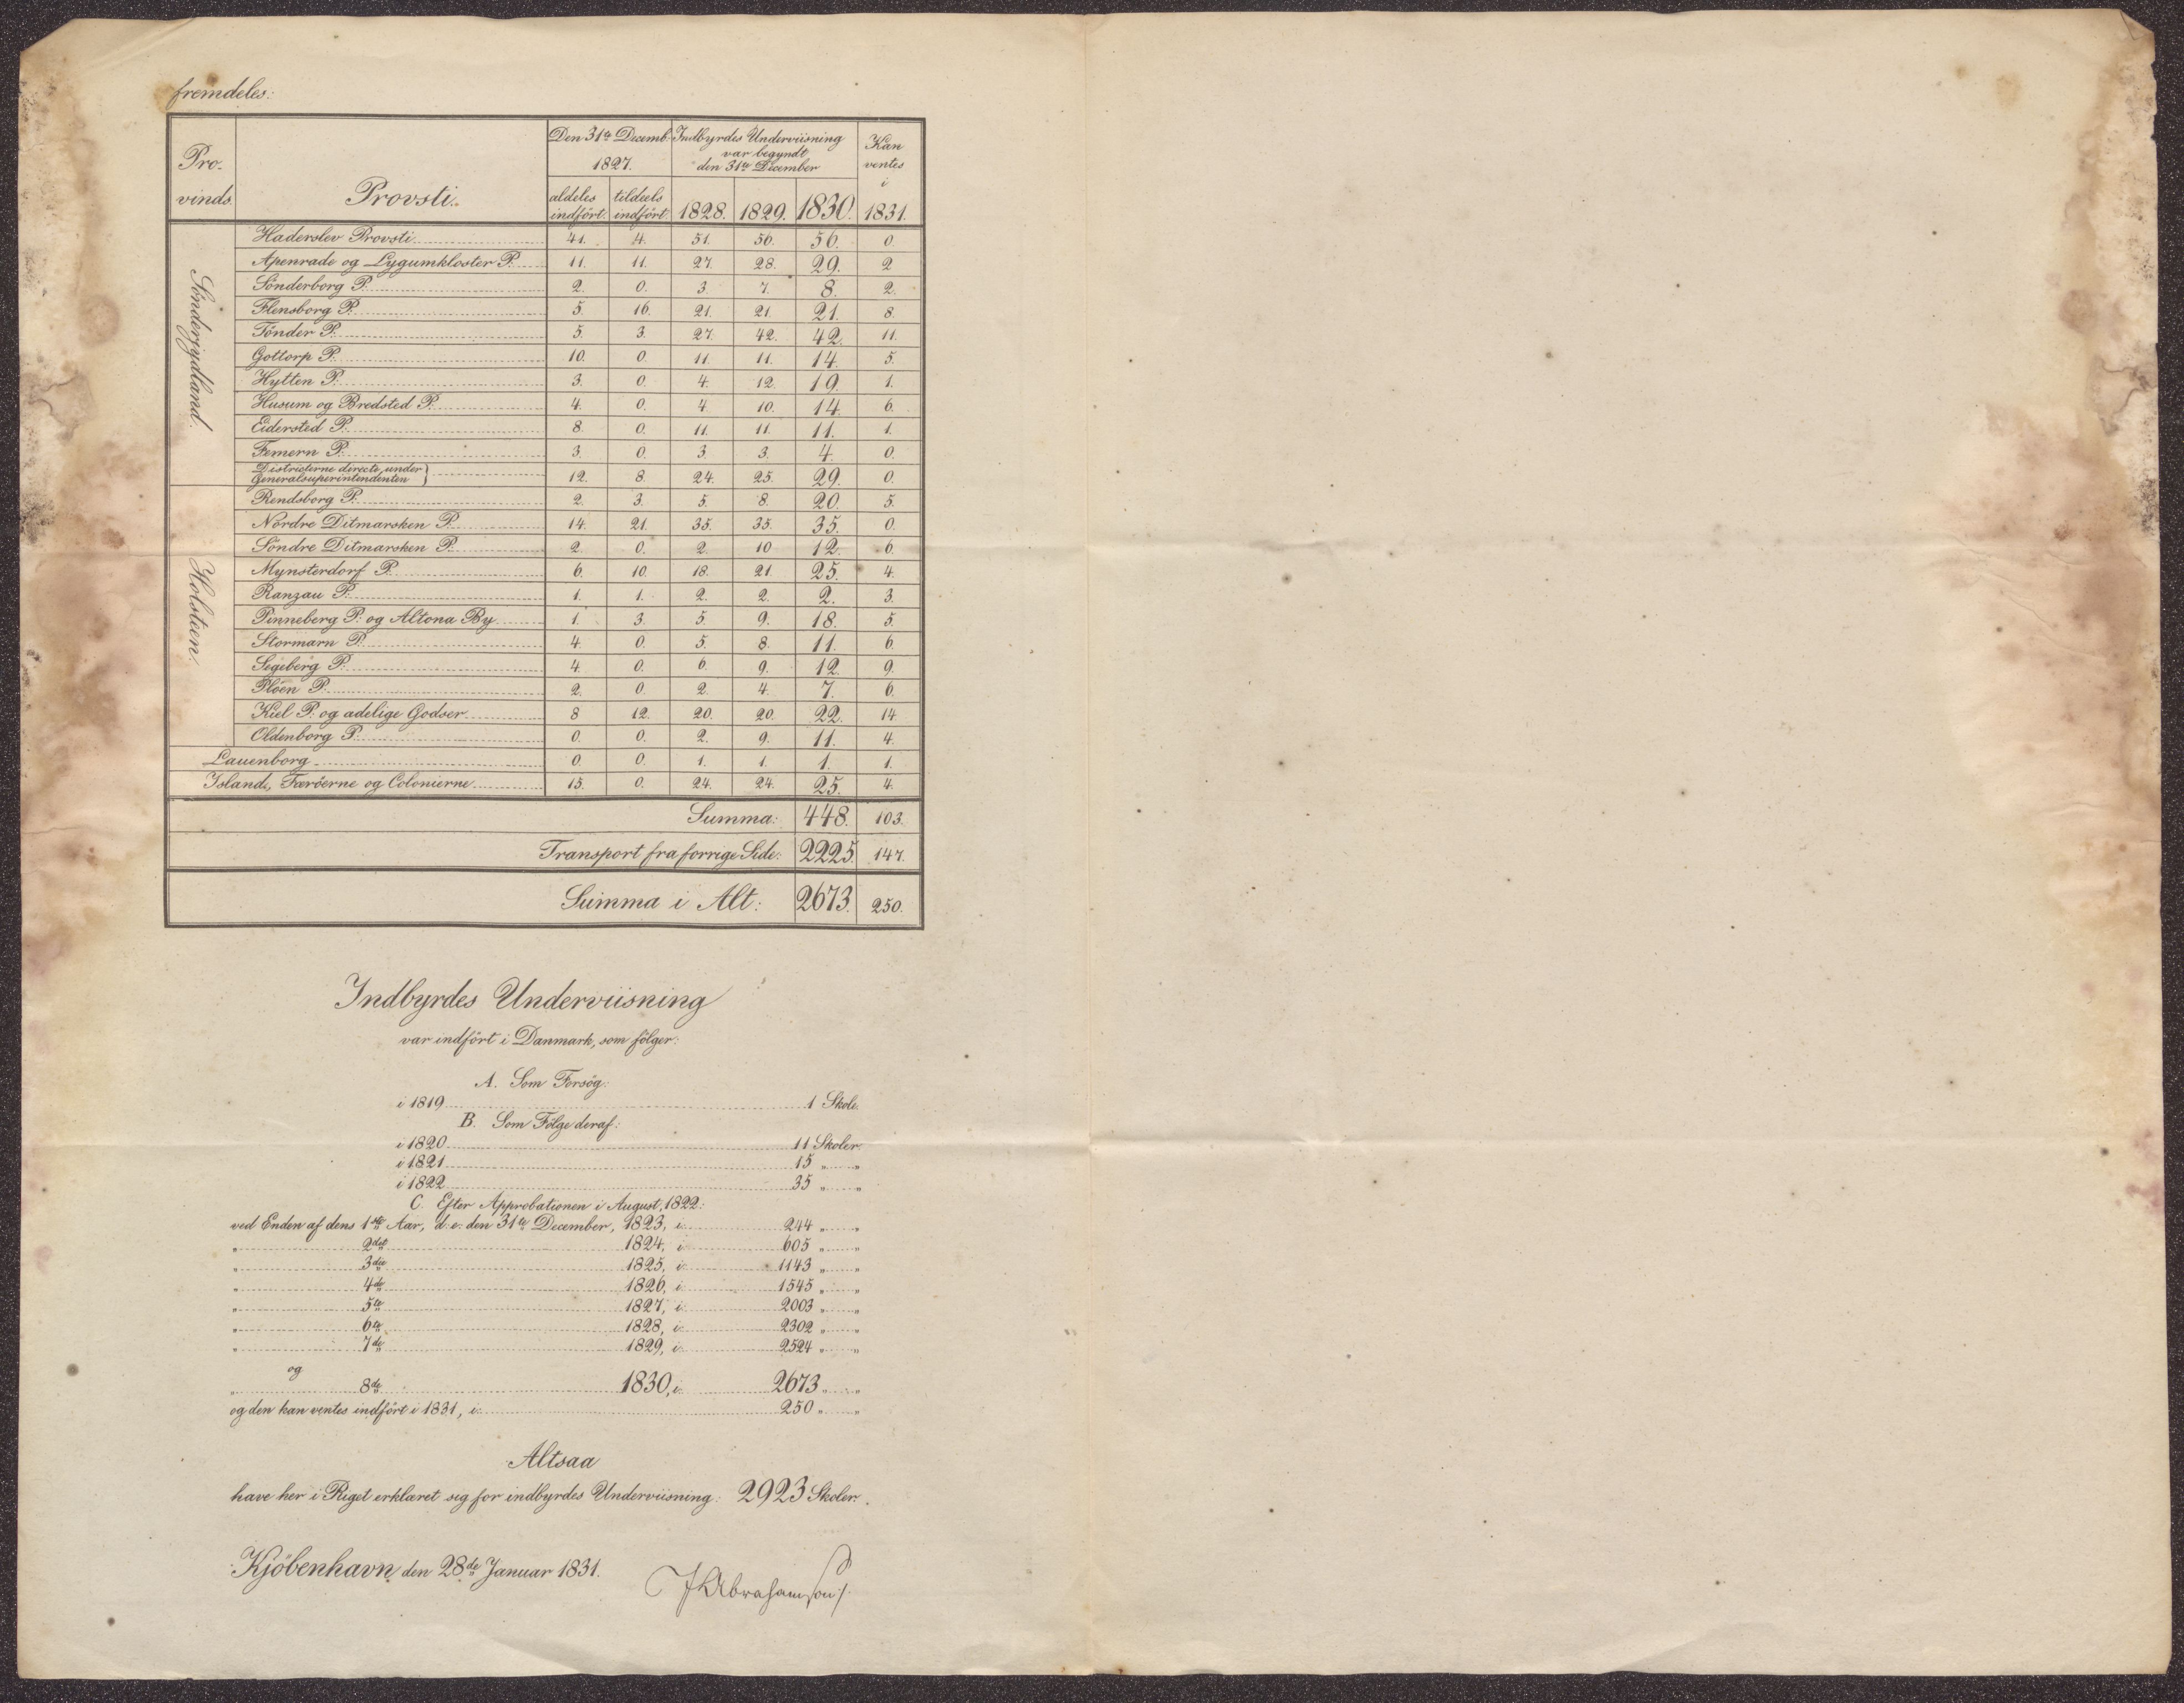 fremdeles:
Pro-
vinds.
Provsti.
Den 31te Decemb.
1827.
Indbyrdes Underviisning
var begyndt
den 31te December
Kan
ventes
i
1831.
aldeles
indført.
tildeels
indført
1828. 1829. 1830.
Sønderjydland.
Haderslev Provsti 41. 4. 51. 56. 56. 0.
Apenrade og Lygumkloster P. 11. 11. 27. 28. 29. 2
Sønderborg P. 2. 0. 3. 7. 8. 2.
Flensborg P. 5. 16. 21. 21. 21. 8.
Tønder P. 5. 3. 27. 42. 42. 11.
Gottorp P. 10. 0. 11. 11. 14. 5.
Hytten P. 3. 0. 4. 12. 19. 1.
Husum og Bredsted P. 4. 0. 4. 10. 14. 6.
Eidersted P. 8. 0. 11. 11. 11. 1.
Femern P. 3. 0. 3. 3. 4. 0.
Districterne directe under
Generalsuperintendenten } 12. 8. 24. 25. 29. 0.
Holsteen.
Rendsborg P. 2. 3. 5. 8. 20. 5.
Nørdre Ditmarsken P. 14. 21. 35. 35. 35. 0.
Søndre Ditmarsken P. 2. 0. 2. 10 12. 6.
Mynsterdorf P. 6. 10. 18. 21. 25. 4.
Ranzau P. 1. 1. 2. 2. 2. 3.
Pinneberg P. og Altona By 1. 3. 5. 9. 18. 5.
Stormarn P. 4. 0. 5. 8. 11. 6.
Segeberg P. 4. 0. 6. 9. 12. 9.
Pløen P. 2. 0. 2. 4. 7. 6.
Kiel P. og adelige Godser 8 12. 20. 20. 22. 14.
Oldenborg P. 0. 0. 2. 9. 11. 4.
Lauenborg 0. 0. 1. 1. 1. 1.
Island, Færøerne og Colonierne 15. 0. 24. 24. 25. 4.
Summa: 448. 103.
Transport fra forrige Side: 2225. 147.
Summa i Alt: 2673. 250.
Indbyrdes Underviisning
var indført i Danmark, som følger:
A. Som Forsøg:
i 1819 1 Skole.
B. Som Følge deraf:
i 1820 11 Skoler.
i 1821 15 „ „
i 1822 35 „ „
C. Efter Approbationen i August, 1822:
ved Enden af dens 1ste Aar, d. e. den 31te December, 1823, i 244 „ „
„ 2det 1824, i 605 „ „
„ 3die 1825, i 1143 „ „
„ 4de 1826, i 1545 „ „
„ 5te 1827, i 2003 „ „
„ 6te 1828, i 2302 „ „
„ 7de 1829, i 2524 „ „
og
„ 8de 1830, i 2673 „ „
og den kan ventes indført i 1831, i 250 „ „
Altsaa
have her i Riget erklæret sig for indbyrdes Underviisning: 2923 Skoler.
Kjøbenhavn, den 28de Januar 1831.
Abrahamson